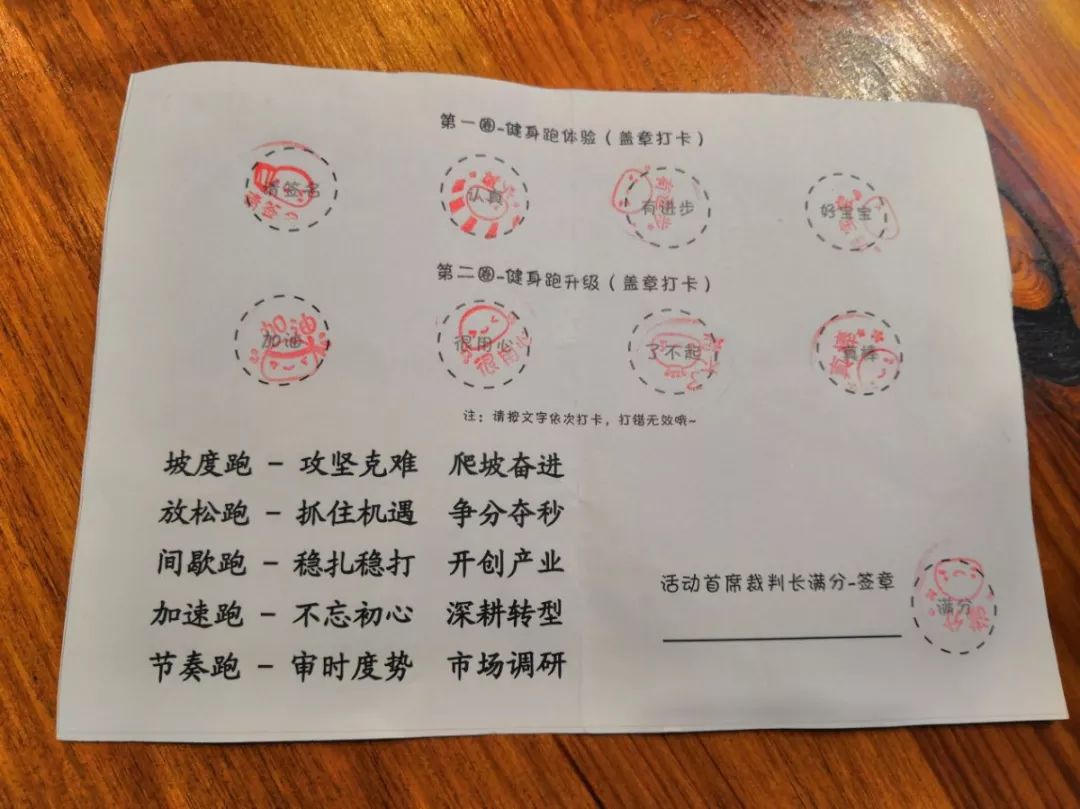 第一圈-健身跑体验（盖章打卡）
请签名 认真 有进步 好宝宝
第二圈-健身跑升级（盖章打卡）
加油 很用心 了不起 真棒
注：请按文字依次打卡，打错无效哦~
坡度跑 - 攻坚克难 爬坡奋进
放松跑 - 抓住机遇 争分夺秒
间歇跑 - 稳扎稳打 开创产业
加速跑 - 不忘初心 深耕转型
节奏跑 - 审时度势 市场调研
活动首席裁判长满分-签章
满分